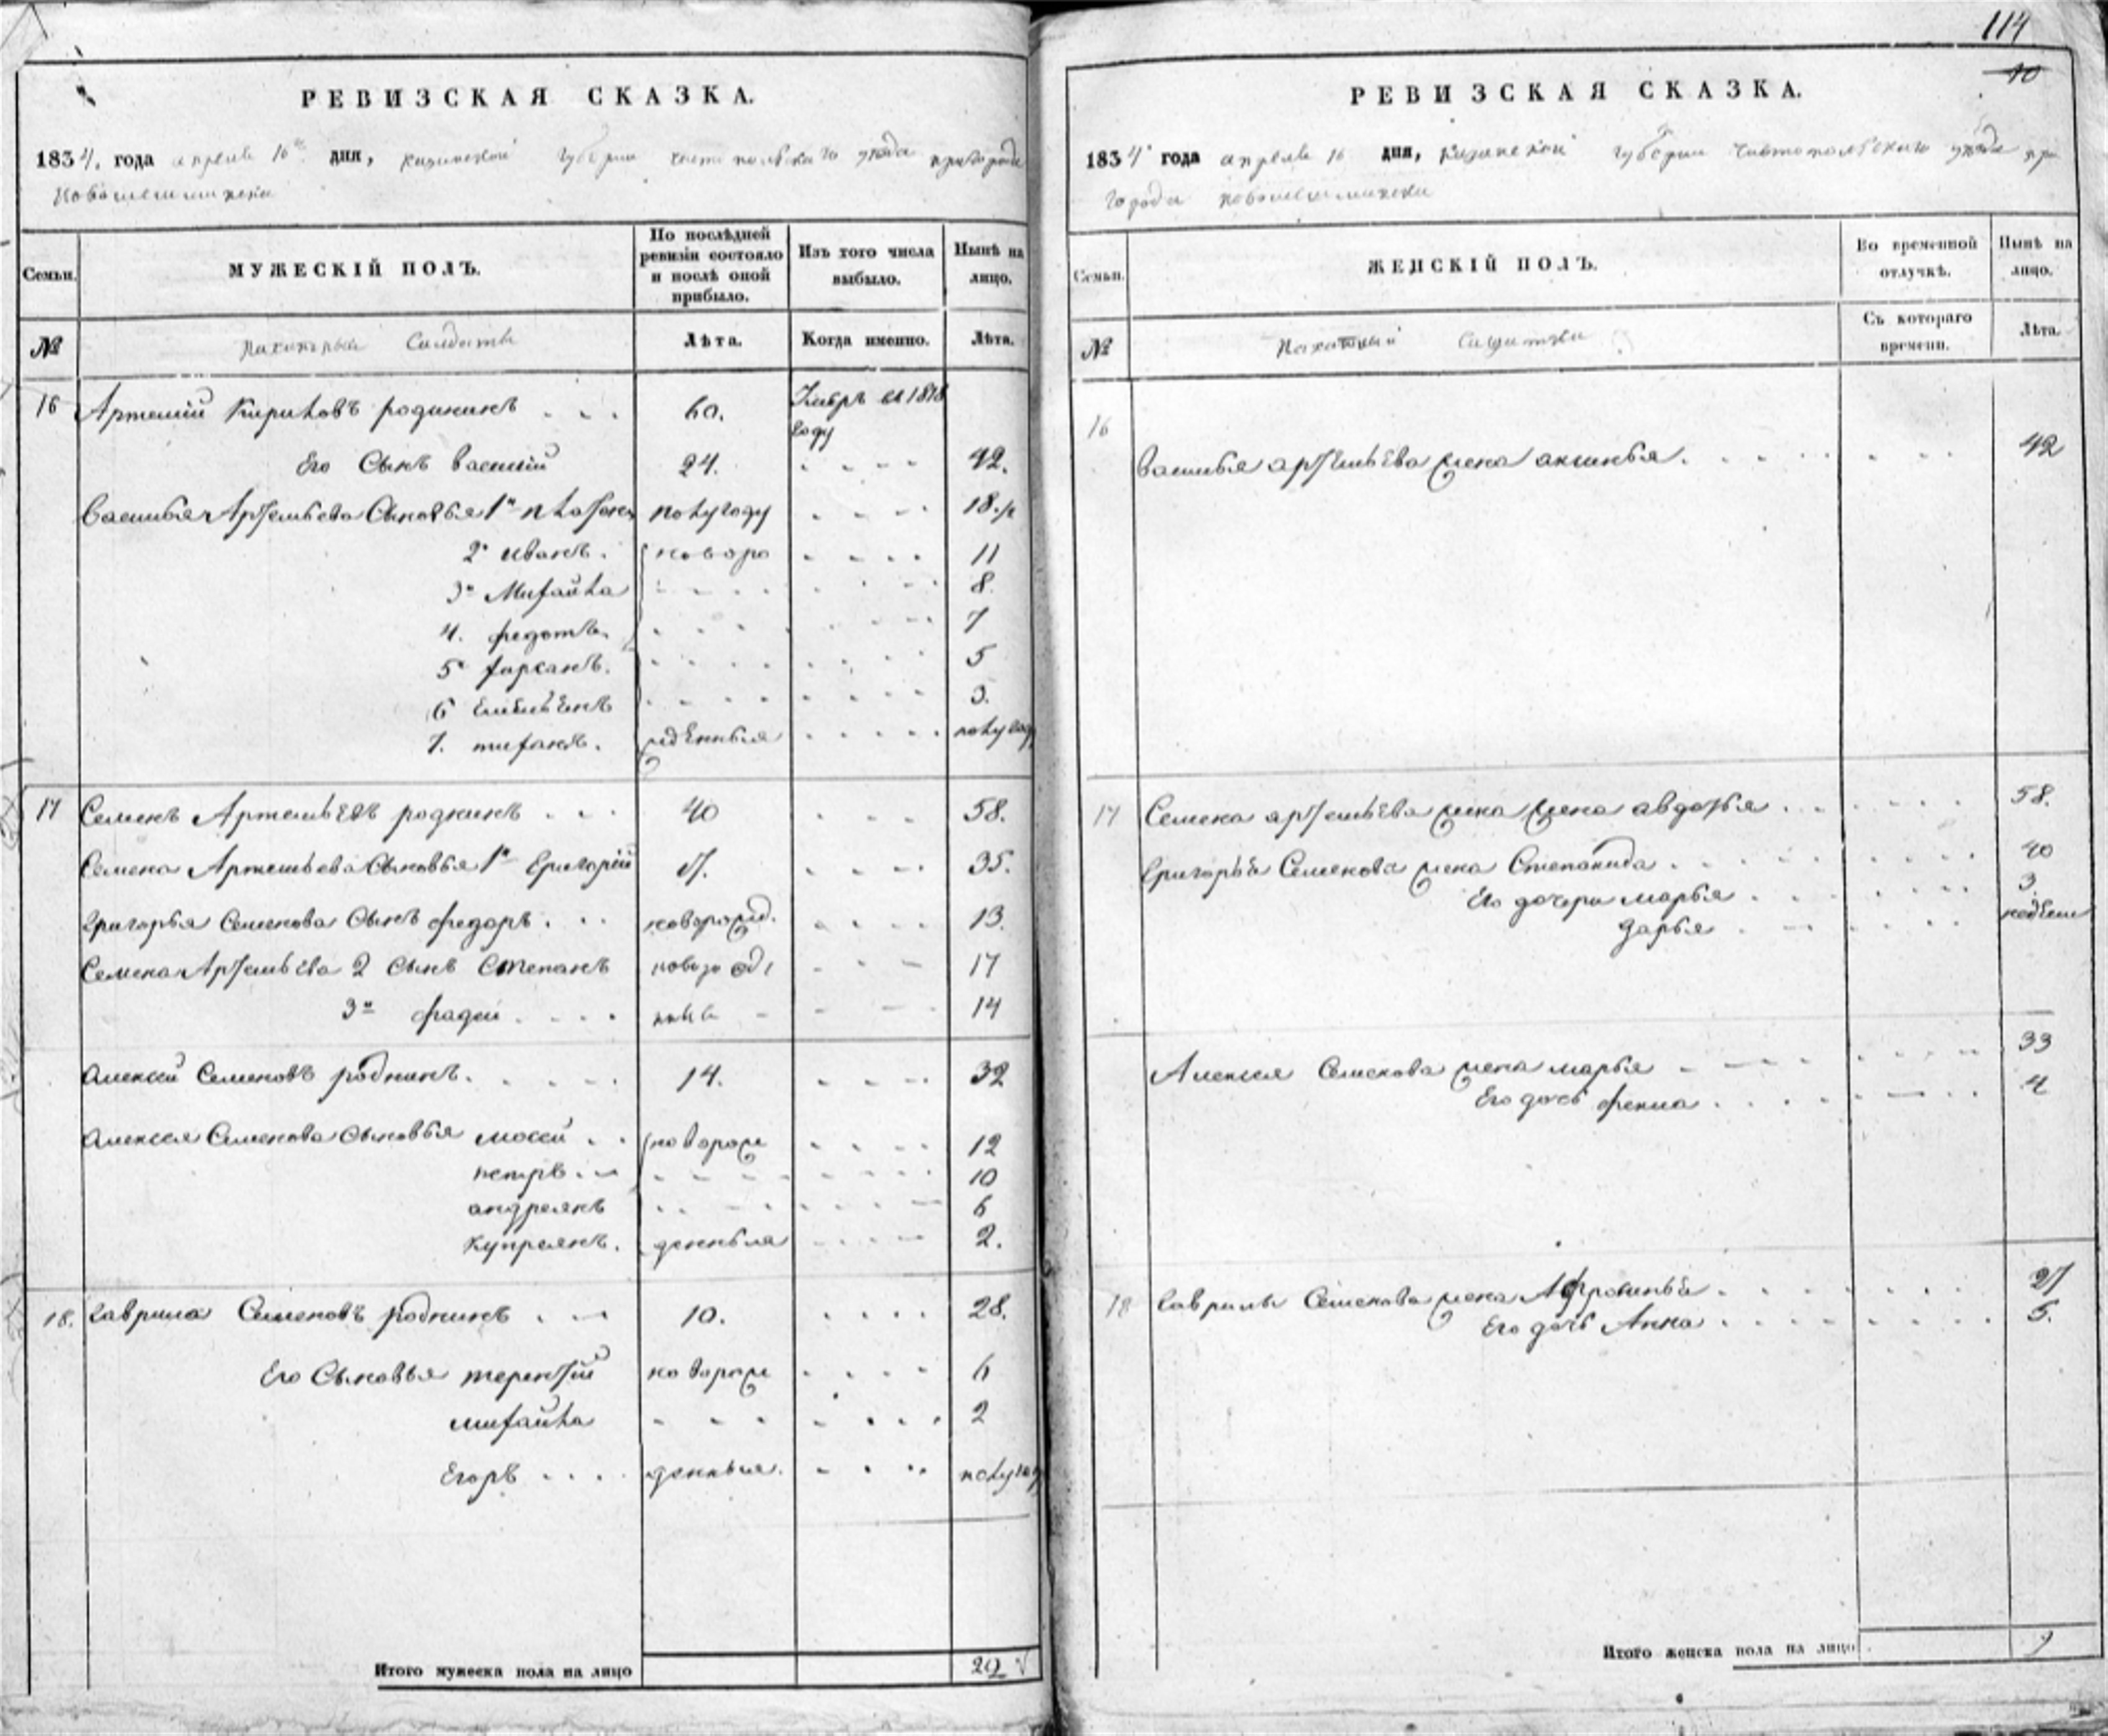 114
10
РЕВИЗСКАЯ СКАЗКА.
1834. года апреля 16го дня, казанской губернии чистопольскаго уезда пригорода
Новошешминска
Семьи. МУЖЕСКІЙ ПОЛЪ. По послѣдней ревизіи состояло и послѣ оной прибыло. Изъ того числа выбыло. Нынѣ на лицо.
№ Пахатныи Солдаты Лѣта. Когда именно. Лѣта.
16 Артемій Кириловъ родинкинъ . . . 60. Умеръ въ 1818 году
Его Сынъ василий 24. 42.
Василья Артемьева Сыновья 1й Платонъ полугоду 18.½
2й иванъ. новоро 11
3й Михайла 8.
4. федотъ. 7
5й 5
6 3.
7. тихонъ. жденныя полугоду
17 Семенъ Артемьевъ родкинъ . . . 40 58.
Семена Артемьева Сыновья 1й Григорій 17. 35.
Григорья Семенова Сынъ федоръ . . . новорожд. 13.
Семена Артемьева 2 Сынъ Степанъ 17
3й фадей . . . . 14
Алексей Семеновъ родкинъ. 14. 32
Алексея Семенова Сыновья мосей . . новорож 12
петръ. 10
андреянъ 6
Купреянъ. денныя 2.
18. Гаврила Семеновъ родкинъ . 10. 28.
Его Сыновья терентий новорож 6
михайла 2
Егоръ . . . . денныя. полугоду
Итого мужеска пола на лицо 22
РЕВИЗСКАЯ СКАЗКА.
1834 года апреля 16 дня, казанской губернии чистопольскаго уезда при
города новошешминска
Семьи. ЖЕНСКІЙ ПОЛЪ. Во временной отлучкѣ. Нынѣ на лицо.
№ Пахатныи Солдатки Съ котораго времени. Лѣта.
16
Василья артемьева жена аксинья. 42
17 Семена артемьева жена авдотья . . 58.
Григорья Семенова жена Степанида . 40
Его дочери марья 3.
дарья . недели
Алексея Семенова жена марья 33
Его дочь фекла . 4
18 Гаврилы Семенова жена Афросинья . 27
Его дочь Анна . 5.
Итого женска пола на лицо 9